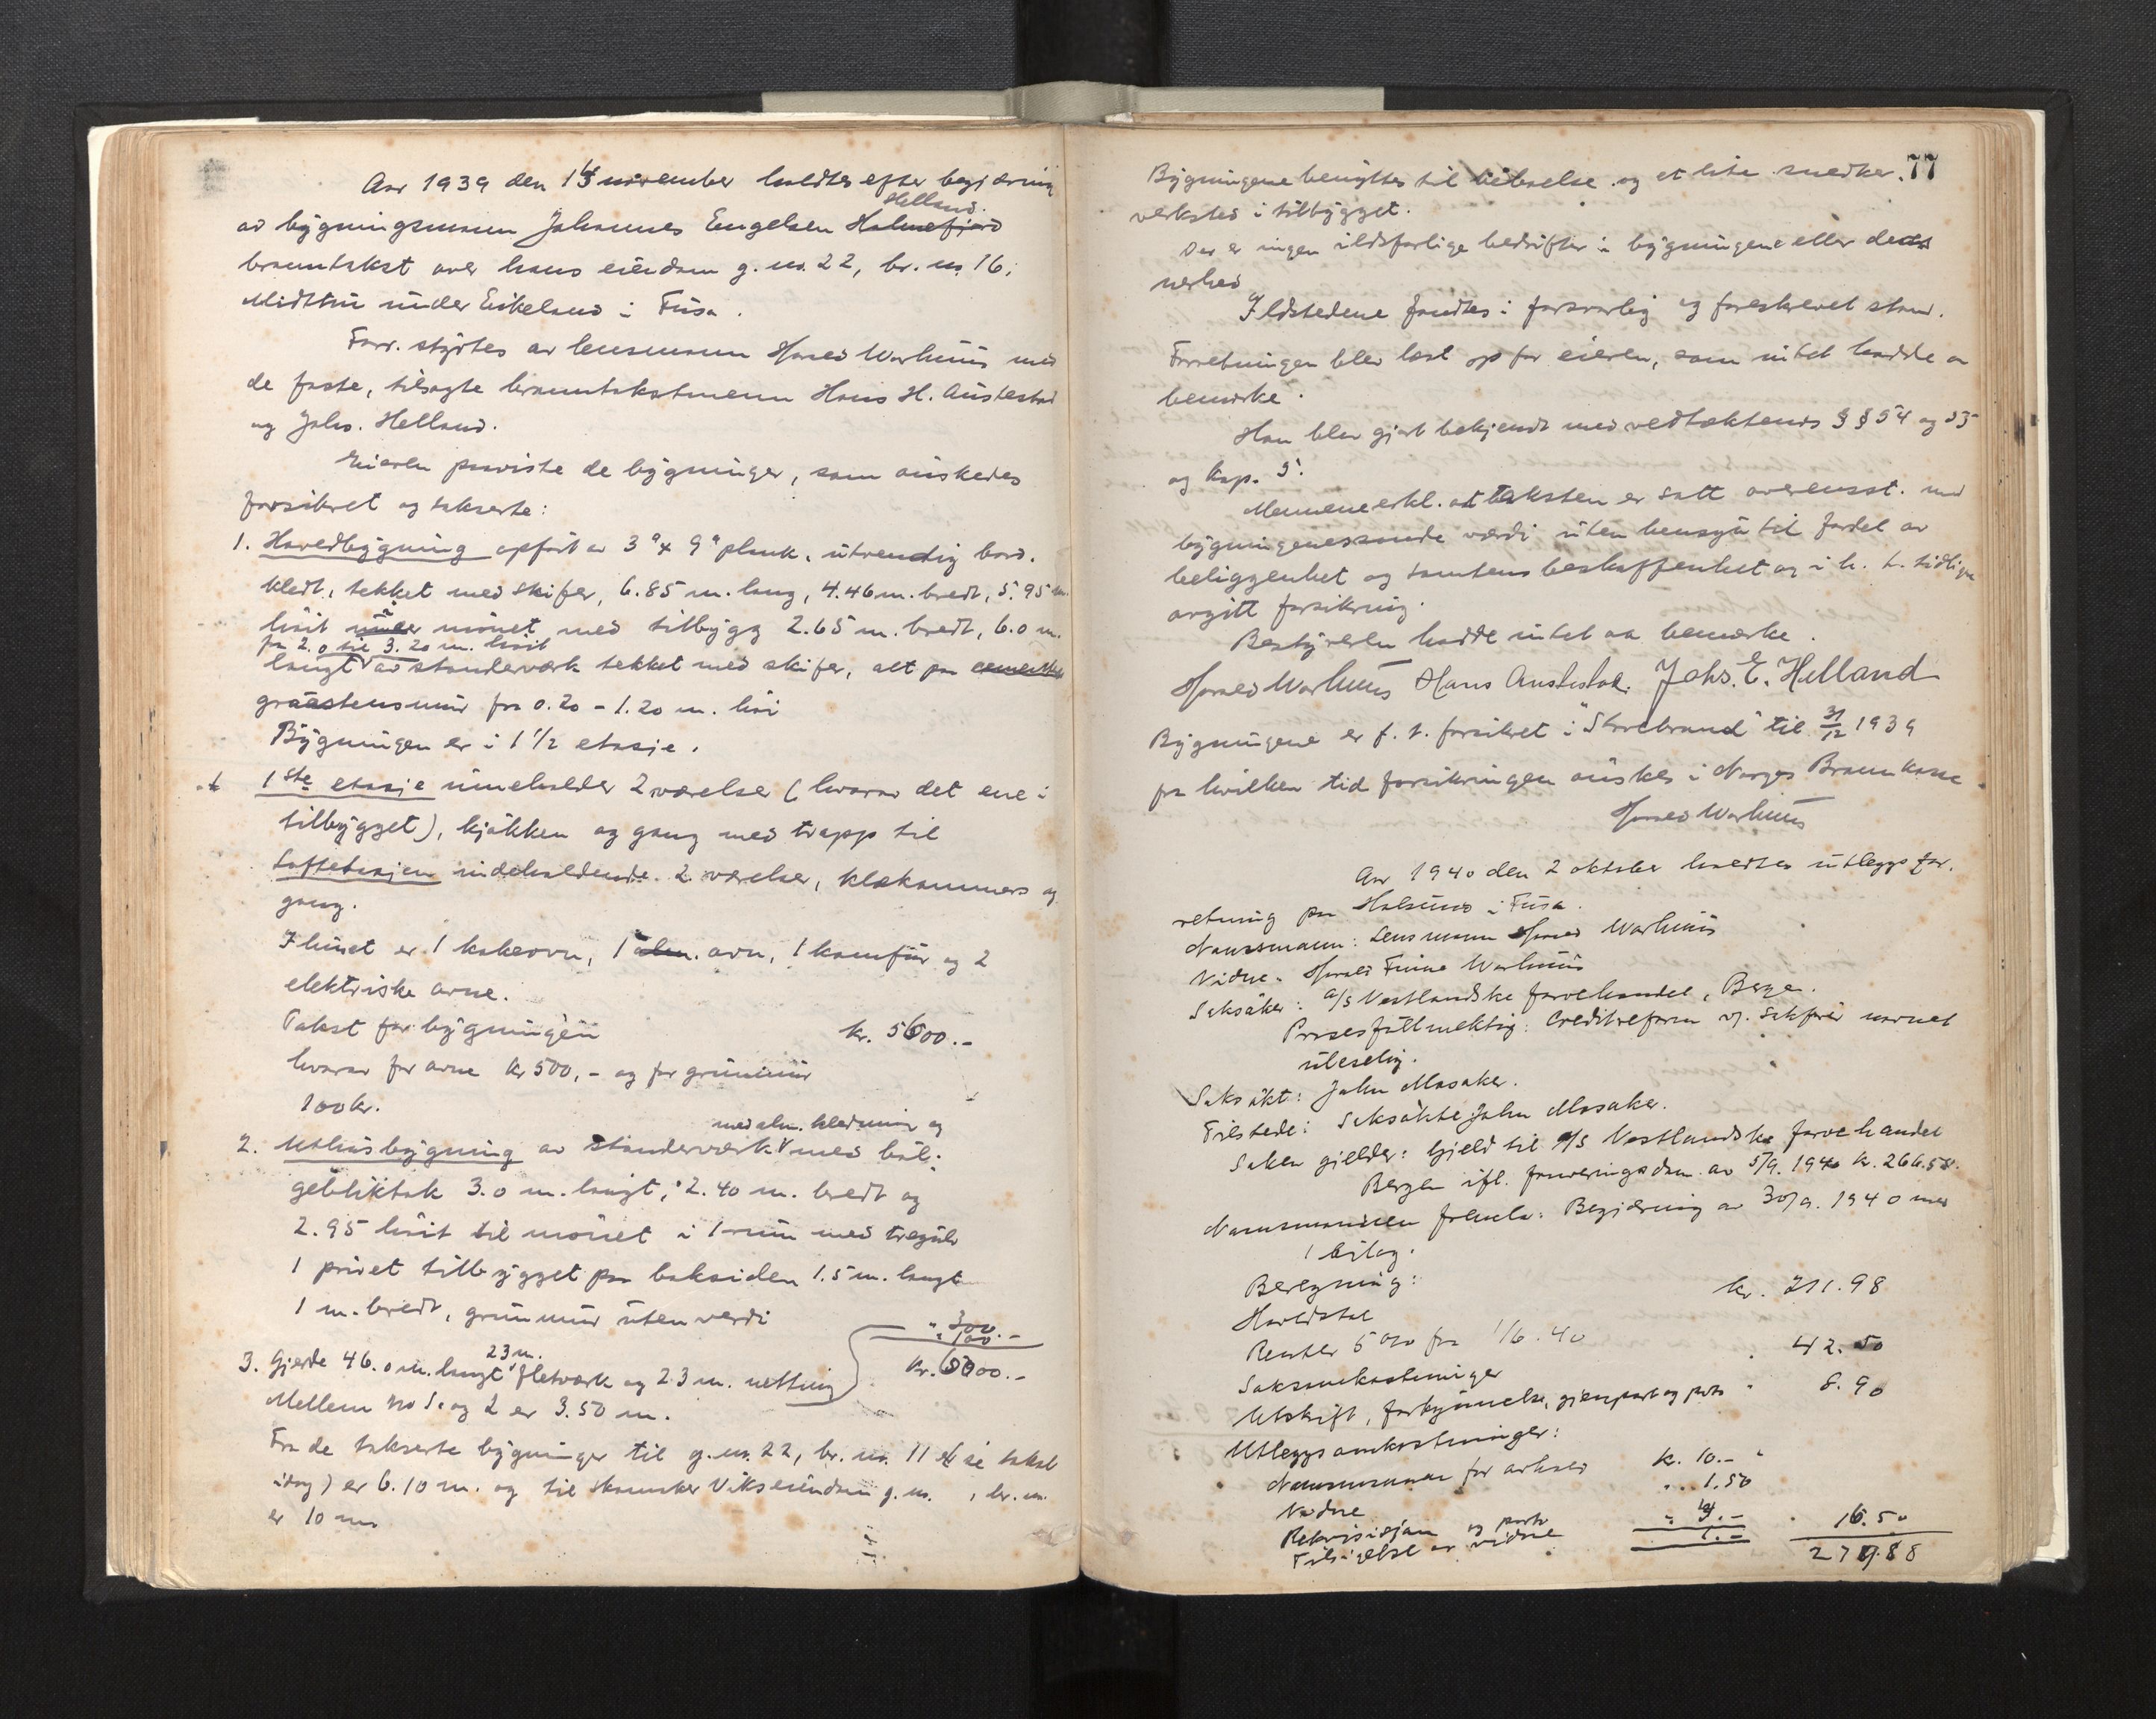 Aar 1939 den 14 november holdtes efter begjæring
Helland.
av bygningsmann Johannes Engelsen Holmefjord
branntakst over hans eiendom g. nr. 22, br. nr. 16,
Midttun under Eikeland i Fusa.
Forr. styrtes av lensmann Harald Warhuus med
de faste, tilsagte branntakstmenn Hans H. Austestad
og Johs. Helland.
Eieren paaviste de bygninger, som önskedes
forsikret og takserte:
1. Hovedbygning opfört av 3" x 9" plank, utvendig bord-
kledt, tekket med skifer, 6.85 m. lang, 4.46 m. bredt, 5.95 m.
höit mönet med tilbygg 2.65 m. bredt, 6.0 m.
fra 2.0 til 3.20 m. höit
langt av standerværk tekket med skifer, alt paa cementert
graastensmur fra 0.20 - 1.20 m. höi
Bygningen er i 1 1/2 etasje.
1ste etasje inneholder 2 værelser (hvorav det ene i
tilbygget), kjökken og gang med trapp til
Loftetasjen indeholdende 2 værelser, klækammers og
gang.
I huset er 1 kakeovn, 1 alm. ovn, 1 komfür og 2
elektriske ovne.
Takst for bygningen kr. 5600.-
hvorav for ovne kr 500,- og for grunmur
100 kr.
med alm. kledning og
2. Uthusbygning av standerværk med böl-
geblikktak 3.0 m. langt, 2.40 m. bredt og
2.95 höit til mönet i 1 rum med tregulv
1 privet tilbygget paa baksiden 1.5 m. langt
1 m. bredt, grunmur uten verdi
" 300.-
" 100.-
23 m.
3. Gjerde 46.0 m. langt fletværk og 23 m. netting kr. 6000.-
Mellem No 1. og 2 er 3.50 m.
Fra de takserte bygninger til g. nr. 22, br. nr. 11 (se takst
idag) er 6.10 m. og til skomaker Viks eiendom g. nr. , br. nr.
er 10 m
77
Bygningene benyttes til beboelse og et lite snedker-
verksted i tilbygget.
Der er ingen ildsfarlige bedrifter i bygningene eller deres
nerhed
Ildstedene fandtes i forsvarlig og foreskrevet stand.
Forretningen blev læst op for eieren, som intet hadde a
bemerke.
Han blev gjort bekjendt med vedtektenes § § 54 og 55
og kap. 5.
Mennene erkl. at taksten er satt overensst. med
bygningenes sande værdi uten hensyn til fordel av
beliggenhet og tomtens beskaffenhet og i h. t. tidligere
avgitt forsikring.
Bestyreren hadde intet aa bemerke.
Harald Warhuus Hans Austestad. Johs. E. Helland
Bygningene er f. t. forsikret i "Storebrand" til 31/12 1939
fra hvilken tid forsikringen önskes i Norges Brannkasse.
Harald Warhuus
Aar 1940 den 2 oktober holdtes utleggsfor-
retning paa Holsund i Fusa.
Namsmann: Lensmann Harald Warhuus
Vidne: Harald Finne Warhuus
Saksöker: A/S Vestlandske farvehandel, Bergen.
Prosesfullmektig: Creditreform v/. Sakförer navnet
uleselig.
Saksökt: John Mosaker.
Tilstede: Saksökte John Mosaker.
Saken gjelder: Gjeld til A/S Vestlandske farvehandel
Bergen ifl. forveringsdom av 5/9. 1940 kr. 266.58.
Namsmannen fremla: Begjæring av 30/9. 1940 med
1 bilag.
Beregning:
Hovedstol kr. 211.98
Renter 5 % fra 1/6. 40
Saksomkostninger " 42.50
Utskrift, forkynnelse, gjenpart og porto " 8.90
Utleggsomkostninger:
Namsmannen for arbeid kr. 10.-
Vidne " 1.50
Rekvisisjon og porto " 4.-
Tilsigelse av vidne 1.- " 16.50
279.88